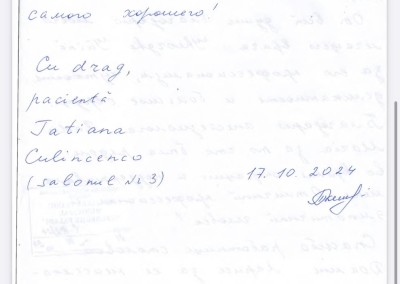 самого хорошего!
Cu drag,
pacientă
Tatiana
Culincenco
(salonul № 3) 17.10.2024